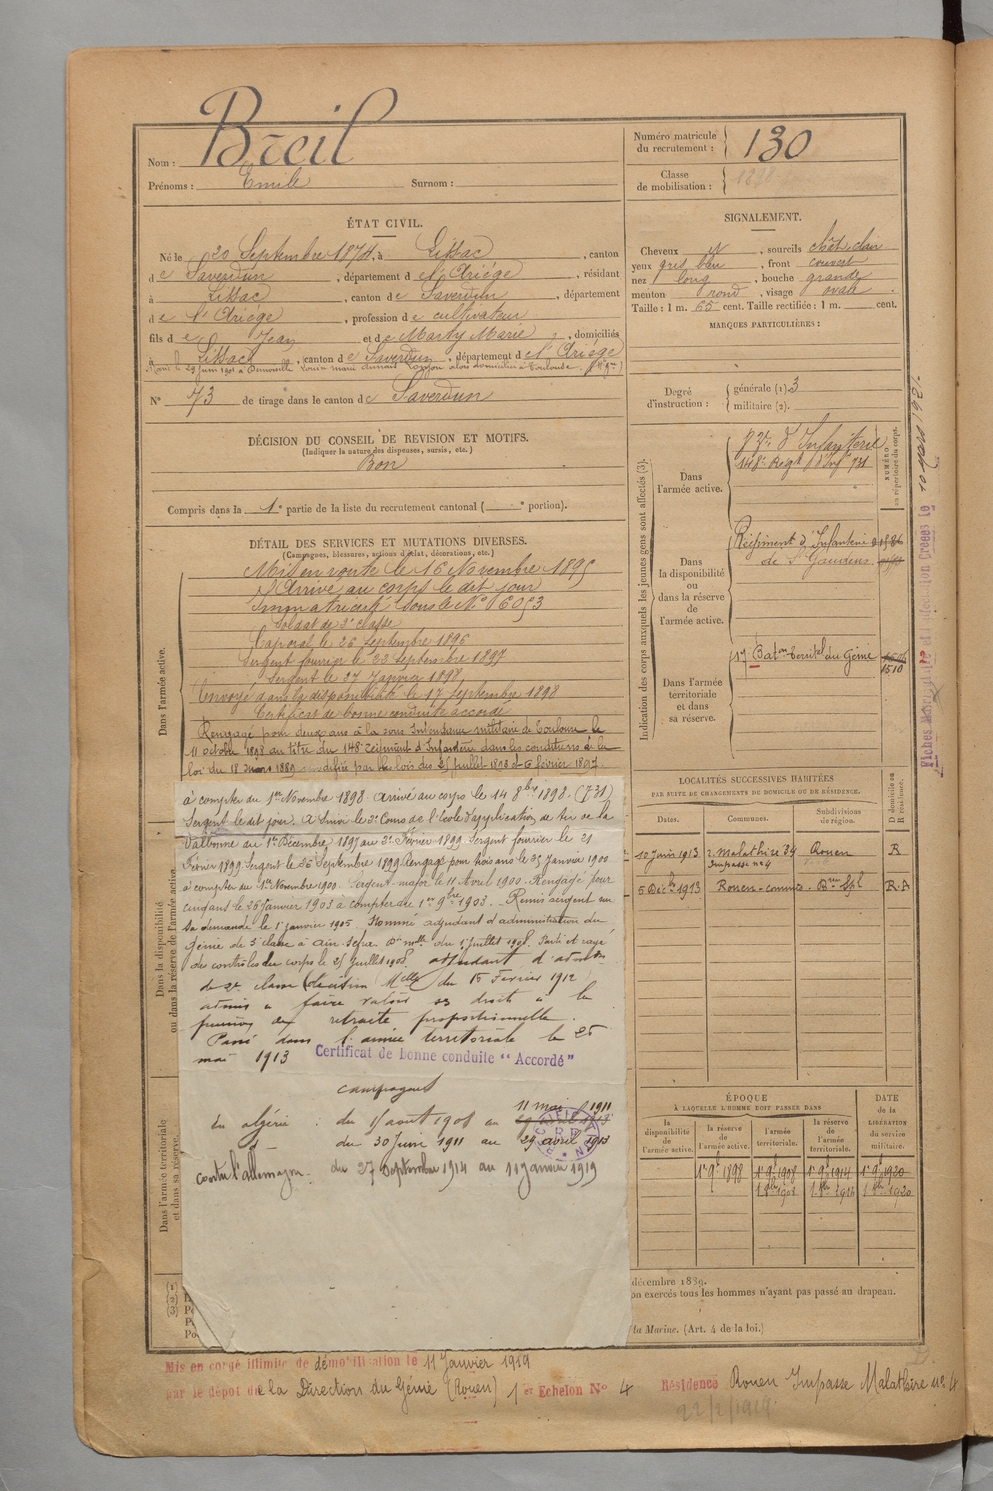 Nom : Breil
Prénoms : Emile Surnom :
Numéro matricule du recrutement : 130
Classe de mobilisation :
ÉTAT CIVIL.
Né le 20 Septembre 1874, à Lissac, canton
de Saverdun, département de l'Ariége, résidant
à Lissac, canton de Saverdun, département
de l'Ariége, profession de cultivateur
fils de Jean et de Marty Marie, domiciliés
à Lissac, canton de Saverdun, département de l'Ariége
Marié le 29 Juin 1901 à
N° 73 de tirage dans le canton de Saverdun
SIGNALEMENT.
Cheveux id, sourcils chât clair
yeux gris bleu, front couvert
nez long, bouche grande
menton rond, visage ovale.
Taille : 1 m. 65 cent. Taille rectifiée : 1 m. cent.
MARQUES PARTICULIÈRES :
Degré d'instruction : générale (1). 3
militaire (2).
DÉCISION DU CONSEIL DE REVISION ET MOTIFS.
(Indiquer la nature des dispenses, sursis, etc.)
Bon
Compris dans la 1e partie de la liste du recrutement cantonal ( e portion).
DÉTAIL DES SERVICES ET MUTATIONS DIVERSES.
(Campagnes, blessures, actions d'éclat, décorations, etc.)
Dans l'armée active.
Mis en route le 16 Novembre 1895
Arrivé au corps le dit jour
Immatriculé sous le N° 16053
Soldat de 2e classe
Caporal le 26 Septembre 1896
Sergent fourrier le 23 Septembre 1897
Sergent le 27 Janvier 1898
Envoyé dans la disponibilité le 17 Septembre 1898
Certificat de bonne conduite accordé
Rengagé pour deux ans à la sous Intendance militaire de Toulouse le
11 octobre 1898 au titre du 148e régiment d'Infanterie dans les conditions de la
loi du 18 mars 1889 modifiée par les lois des 25 juillet 1893 et 6 février 1897.
à compter du 1er Novembre 1898. Arrivé au corps le 14 8bre 1898. (731)
Sergent le dit jour. A suivi le 3e Cours de l'école d'application de tir de la
Valbonne du 1er Décembre 1897 au 3 Février 1899. Sergent fourrier le 21
Février 1899. Sergent le 26 Septembre 1899. Rengagé pour trois ans le 25 Janvier 1900
à compter du 1er Novembre 1900. Sergent-major le 11 Avril 1900. Rengagé pour
cinq ans le 26 janvier 1903 à compter du 1er 9bre 1903. Remis sergent sur
sa demande le 1er janvier 1905. Nommé adjudant d'administration du
Génie de 3e classe à Aïn-Sefra Don mlle du 1er juillet 1908. Parti et rayé
des contrôles du corps le 25 Juillet 1908. adjudant d'admon
de 2e classe (décision Mlle du 15 Fevrier 1912
admis à faire valoir ses droits à la
pension de retraite proportionnelle.
Passé dans l'armée territoriale le 25
mai 1913 Certificat de bonne conduite "Accordé"
campagnes
En algérie : du 1er aout 1908 au 11 mai 1911
du 30 Juin 1911 au 29 avril 1913
contre l'allemagne. du 27 Septembre 1914 au 11 Janvier 1919
Dans la disponibilité ou dans la réserve de l'armée active.
Dans l'armée territoriale et dans sa réserve.
(1)
(2)
(3)
Indication des corps auxquels les jeunes gens sont affectés (3).
NUMÉRO au répertoire du corps.
Dans l'armée active.
72e d'Infanterie
148e Regt d'Infie 731
Dans la disponibilité ou dans la réserve de l'armée active.
Régiment d'Infanterie
de St Gaudens
Dans l'armée territoriale et dans sa réserve.
17e Baton territal du Génie
1510
LOCALITÉS SUCCESSIVES HABITÉES
PAR SUITE DE CHANGEMENTS DE DOMICILE OU DE RÉSIDENCE.
Dates. Communes. Subdivisions de région. D domicile ou R résidence.
10 Juin 1913 r. Malathire 34 Impasse no 4 Rouen R
5 Déc 1913 Rouen Bon Spl R.A
ÉPOQUE
À LAQUELLE L'HOMME DOIT PASSER DANS
la disponibilité de l'armée active. la réserve de l'armée active. l'armée territoriale. la réserve de l'armée territoriale.
DATE de la LIBÉRATION du service militaire.
1er 9bre 1898 1er 9bre 1908 1er 9bre 1914 1er 9bre 1920
décembre 1889.
on exercés tous les hommes n'ayant pas passé au drapeau.
la Marine. (Art. 4 de la loi.)
Mis en congé illimité de démobilisation le 11 Janvier 1919
par le dépôt de la Direction du Génie (Rouen) 1er Echelon N° 4
Résidence Rouen Impasse Malathire no 4
22/2/1919